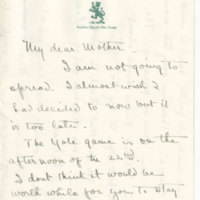 ALPHA DELTA PHI CLUB
My dear Mother
I am not going to
spread. I almost wish I
had decided to now but it
is too late.
The Yale game is on the
afternoon of the 22nd.
I dont think it would be
worth while for you to stay